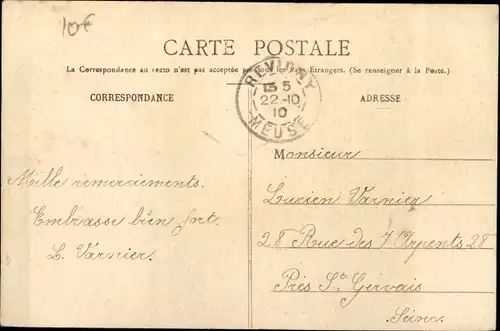 10€
CARTE POSTALE
La Correspondance au recto n'est pas acceptée par tous les Pays Etrangers. (Se renseigner à la Poste.)
REVIGNY
13 5
22-10
10
MEUSE
CORRESPONDANCE
ADRESSE
Mille remerciements.
Embrasse bien fort.
L. Varnier.
Monsieur
Lucien Varnier
28 Rue des 7 Arpents 28
Prés St Gervais
Seine.